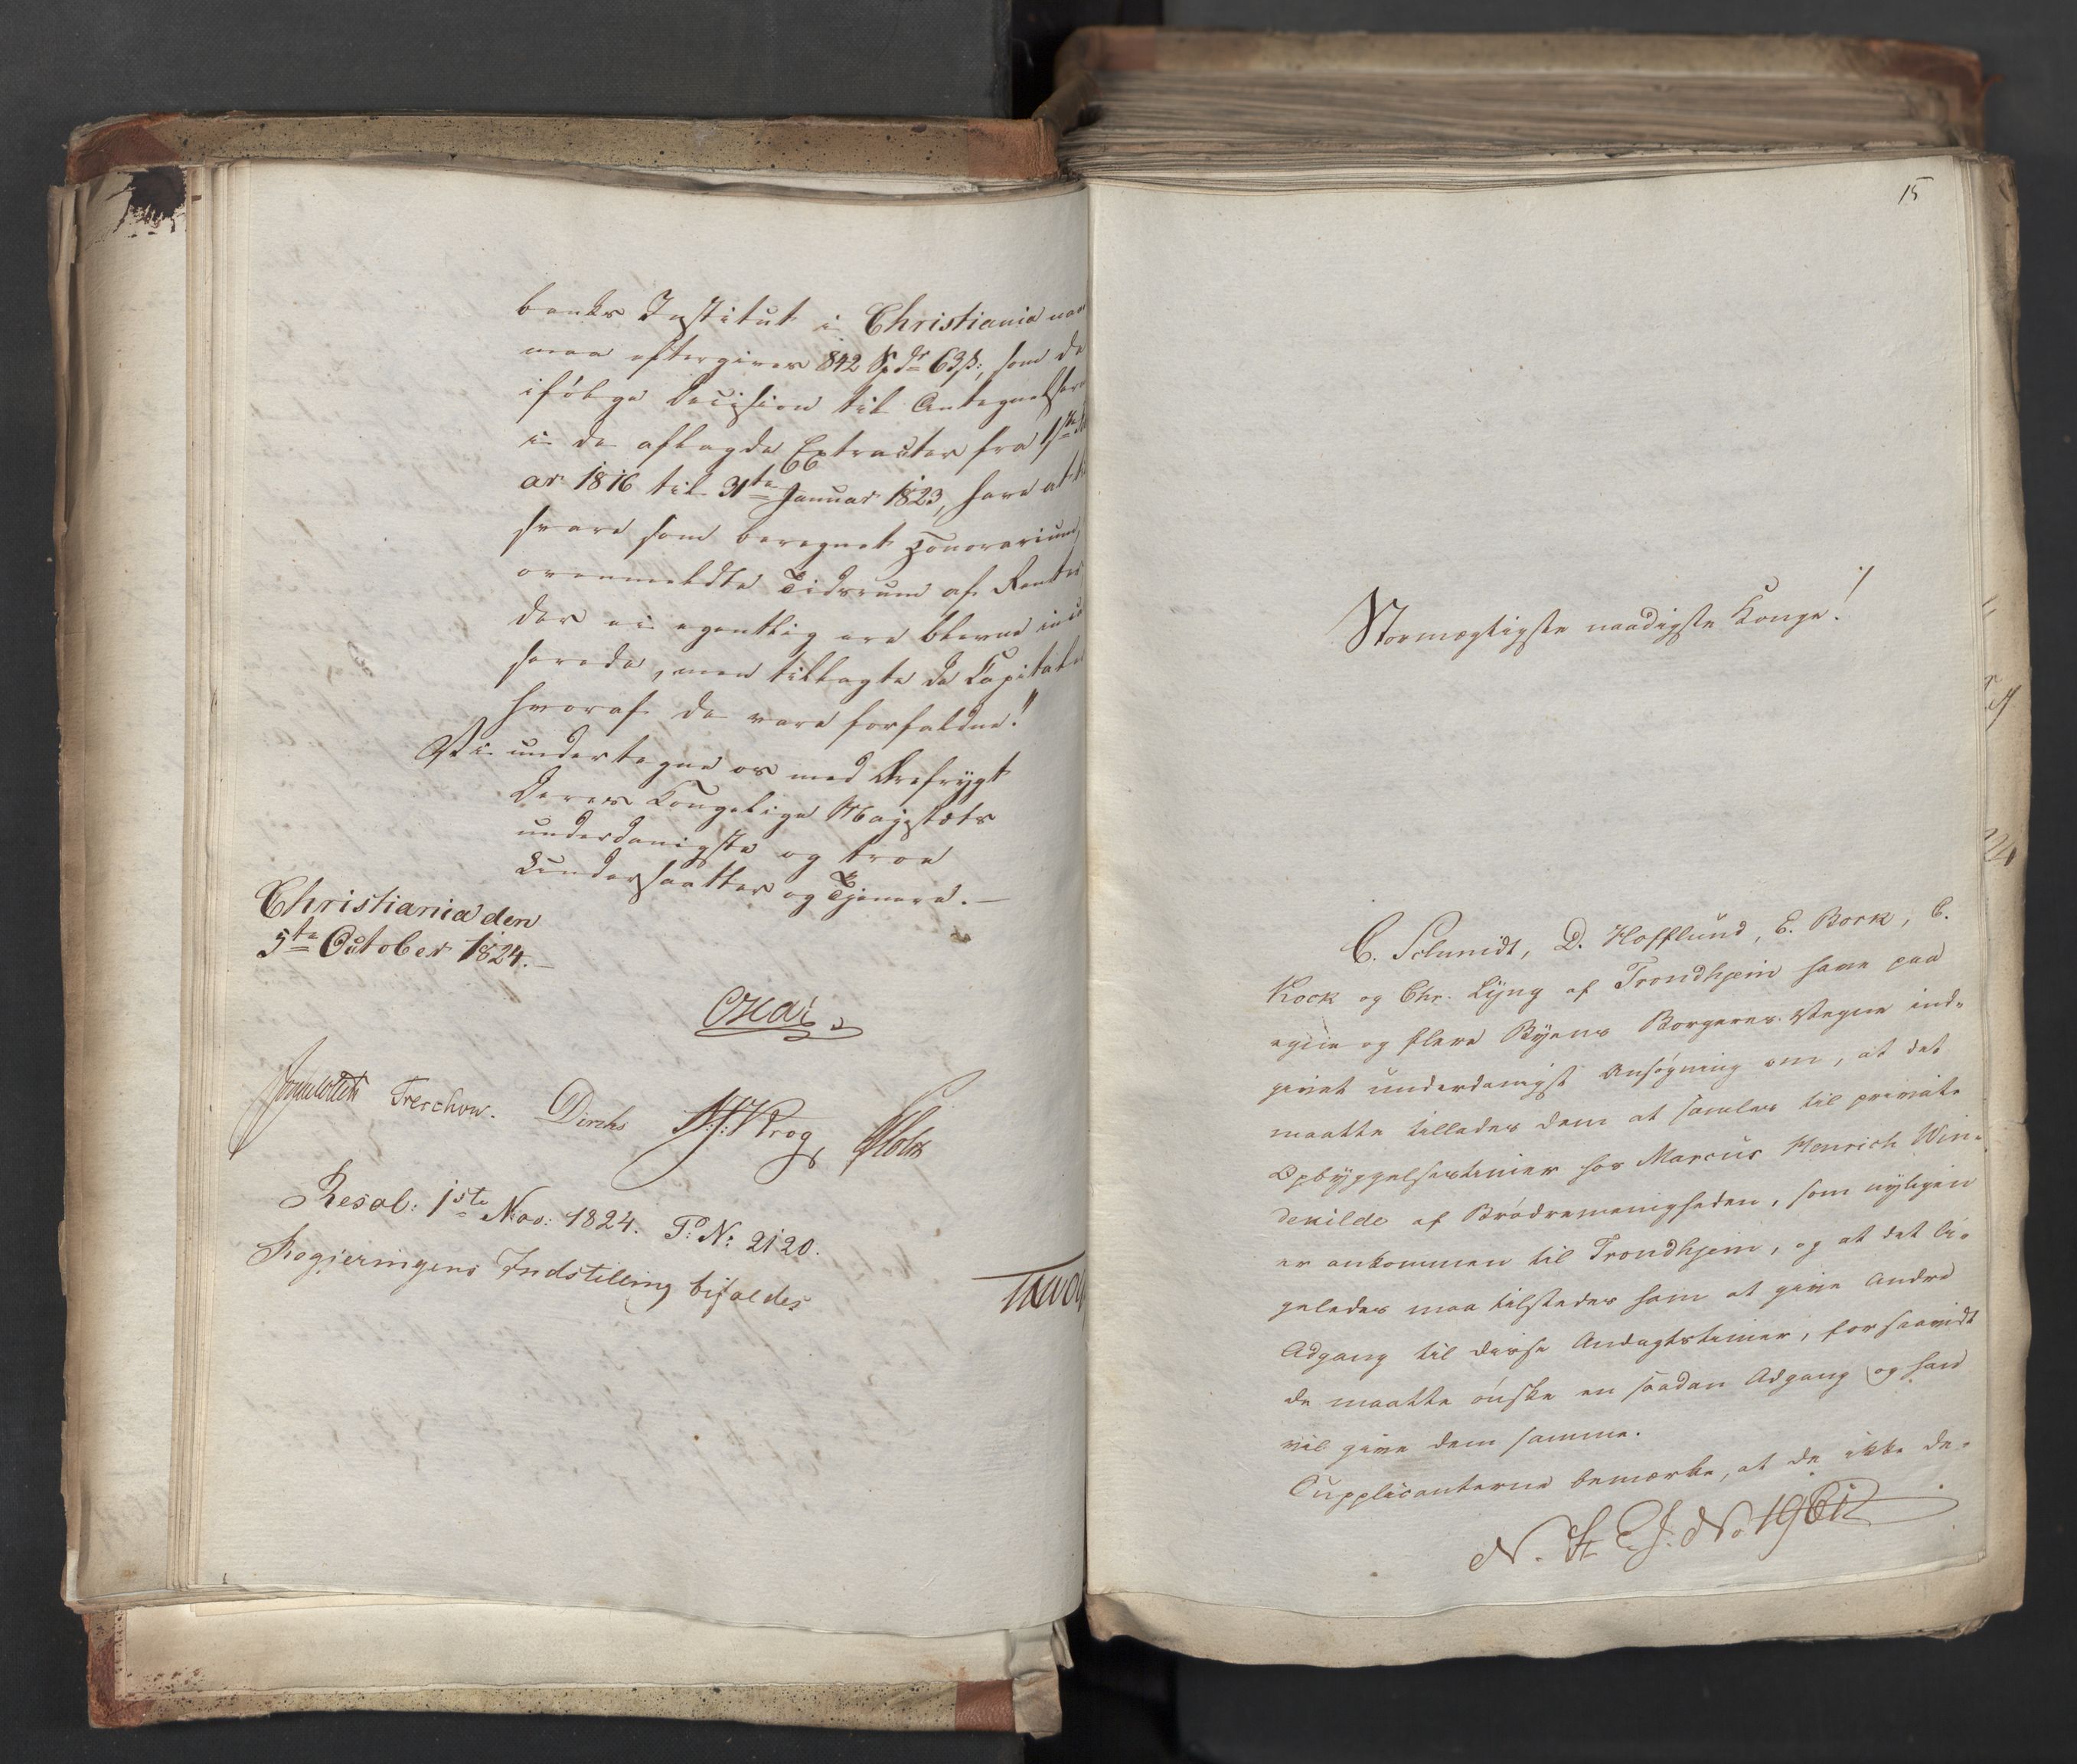 banks Institut i Christiania naa-
maa eftergives 842 Spdr 63 ß:, som de
ifølge Decision til Antegnelsern
i de aflagde Extracter fra 1ste
ar 1816 til 31te Januar 1823, have at
svare som beregnet Honorarium,
ovenmeldte Tidsrum af Renter,
der ei egentlig ere blevne
serede, men tillagte de Capitaler
hvoraf de vare forfaldne!"
Vi undertegne os med Ærefrygt
Deres Kongelige Majestæts
underdanigste og troe
Undersaatter og Tjenere.—
Christiania den
5te October 1824.—
Oscar
Sommerhielm Treschow. Diriks Krog Holst
Resol: 1ste Nov: 1824. P: N: 2120.
Regjeringens Indstilling bifaldes
15
Stormægtigste naadigste Konge!
C. Schmidt, D. Hofflund, E. Bork, C.
Kock og Chr. Lyng af Trondhjem have paa
egne og flere Byens Borgeres Vegne ind-
givet underdanigst Ansøgning om, at det
maatte tillades dem at samles til private
Opbyggelsestimer hos Marcus Henrich Win-
dekilde af Brødremenigheden, som nyligen
er ankommen til Trondhjem, og at det li-
geledes maa tilstedes ham at give Andre
Adgang til disse Andagtstimer, forsaavidt
de maatte ønske en saadan Adgang og han
vil give dem samme.
Supplicanterne bemærke, at de ikke de-
N. St. E. J. No 1961